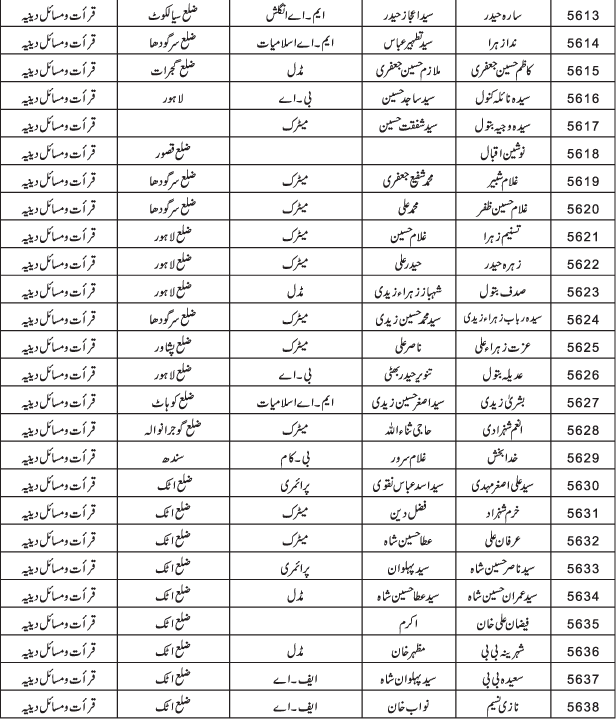 5613 سارہ حیدر سید اعجاز حیدر ایم۔اے انگلش ضلع سیالکوٹ قرأت ومسائل دینیہ
5614 ندا زہرا سید تطہیر عباس ایم۔اے اسلامیات ضلع سرگودھا قرأت ومسائل دینیہ
5615 کاظم حسین جعفری ملازم حسین جعفری مڈل ضلع گجرات قرأت ومسائل دینیہ
5616 سیدہ نائلہ کنول سید ساجد حسین بی۔اے لاہور قرأت ومسائل دینیہ
5617 سیدہ وجیہ بتول سید شفقت حسین میٹرک قرأت ومسائل دینیہ
5618 نوشین اقبال ضلع قصور قرأت ومسائل دینیہ
5619 غلام شبیر محمد شفیع جعفری میٹرک ضلع سرگودھا قرأت ومسائل دینیہ
5620 غلام حسین ظفر محمد علی میٹرک ضلع سرگودھا قرأت ومسائل دینیہ
5621 تسنیم زہرا غلام حسین میٹرک ضلع لاہور قرأت ومسائل دینیہ
5622 زہرہ حیدر حیدر علی میٹرک ضلع لاہور قرأت ومسائل دینیہ
5623 صدف بتول شہباز زہراء زیدی مڈل ضلع لاہور قرأت ومسائل دینیہ
5624 سیدہ رباب زہراء زیدی سید محمد حسین زیدی میٹرک ضلع سرگودھا قرأت ومسائل دینیہ
5625 عزت زہراء علی ناصر علی میٹرک ضلع پشاور قرأت ومسائل دینیہ
5626 عدیلہ بتول تنویر حیدر بھٹی بی۔اے ضلع لاہور قرأت ومسائل دینیہ
5627 بشریٰ زیدی سید اصغر حسین زیدی ایم۔اے اسلامیات ضلع کوہاٹ قرأت ومسائل دینیہ
5628 انعم شہزادی حاجی ثناء اللہ میٹرک ضلع گوجرانوالہ قرأت ومسائل دینیہ
5629 خدا بخش غلام سرور بی۔کام سندھ قرأت ومسائل دینیہ
5630 سید علی اصغر مہدی سید اسد عباس نقوی پرائمری ضلع اٹک قرأت ومسائل دینیہ
5631 خرم شہزاد فضل دین میٹرک ضلع اٹک قرأت ومسائل دینیہ
5632 عرفان علی عطا حسین شاہ میٹرک ضلع اٹک قرأت ومسائل دینیہ
5633 سید ناصر حسین شاہ سید پہلوان پرائمری ضلع اٹک قرأت ومسائل دینیہ
5634 سید عمران حسین شاہ سید عطا حسین شاہ مڈل ضلع اٹک قرأت ومسائل دینیہ
5635 فیضان علی خان اکرم ضلع اٹک قرأت ومسائل دینیہ
5636 شہرینہ بی بی مظہر خان مڈل ضلع اٹک قرأت ومسائل دینیہ
5637 سعیدہ بی بی سید پہلوان شاہ ایف۔اے ضلع اٹک قرأت ومسائل دینیہ
5638 نازی نسیم نواب خان ایف۔اے ضلع اٹک قرأت ومسائل دینیہ